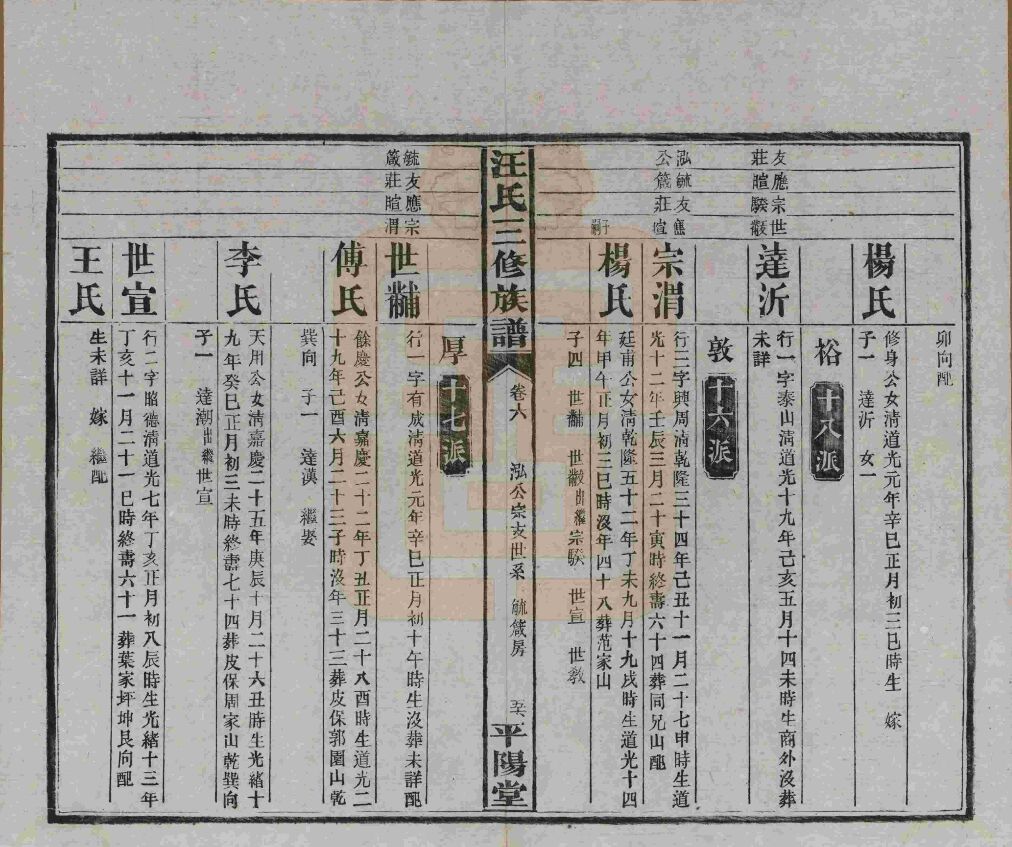 卯向配
楊氏
修身公女淸道光元年辛巳正月初三巳時生　嫁
子一　達沂　女一
裕　十八派
友應宗世
莊暄騤黻
達沂
行一字泰山淸道光十九年己亥五月十四未時生商外沒葬
未詳
敦　十六派
泓毓友應
公箴莊暄
宗渭
行三字興周淸乾隆三十四年己丑十一月二十七申時生道
光十二年壬辰三月二十寅時終壽六十四葬同兄山配
子嗣
楊氏
廷甫公女淸乾隆五十二年丁未九月十九戌時生道光十四
年甲午正月初三巳時沒年四十八葬范家山
子四　世黼　世黻出繼宗騤　世宣　世敎
汪氏三修族譜
卷六
泓公宗支世系　毓箴房
平陽堂
厚　十七派
毓友應宗
箴莊暄渭
世黼
行一字有成淸道光元年辛巳正月初十午時生沒葬未詳配
傅氏
餘慶公女淸嘉慶二十二年丁丑正月二十八酉時生道光二
十九年己酉六月二十三子時沒年三十三葬皮保郭園山乾
巽向　子一　達漢　繼娶
李氏
天用公女淸嘉慶二十五年庚辰十月二十六丑時生光緒十
九年癸巳正月初三未時終壽七十四葬皮保周家山乾巽向
子一　達潮出繼世宣
世宣
行二字昭德淸道光七年丁亥正月初八辰時生光緒十三年
丁亥十一月二十一巳時終壽六十一葬葉家坪坤艮向配
王氏
生未詳　嫁　繼配